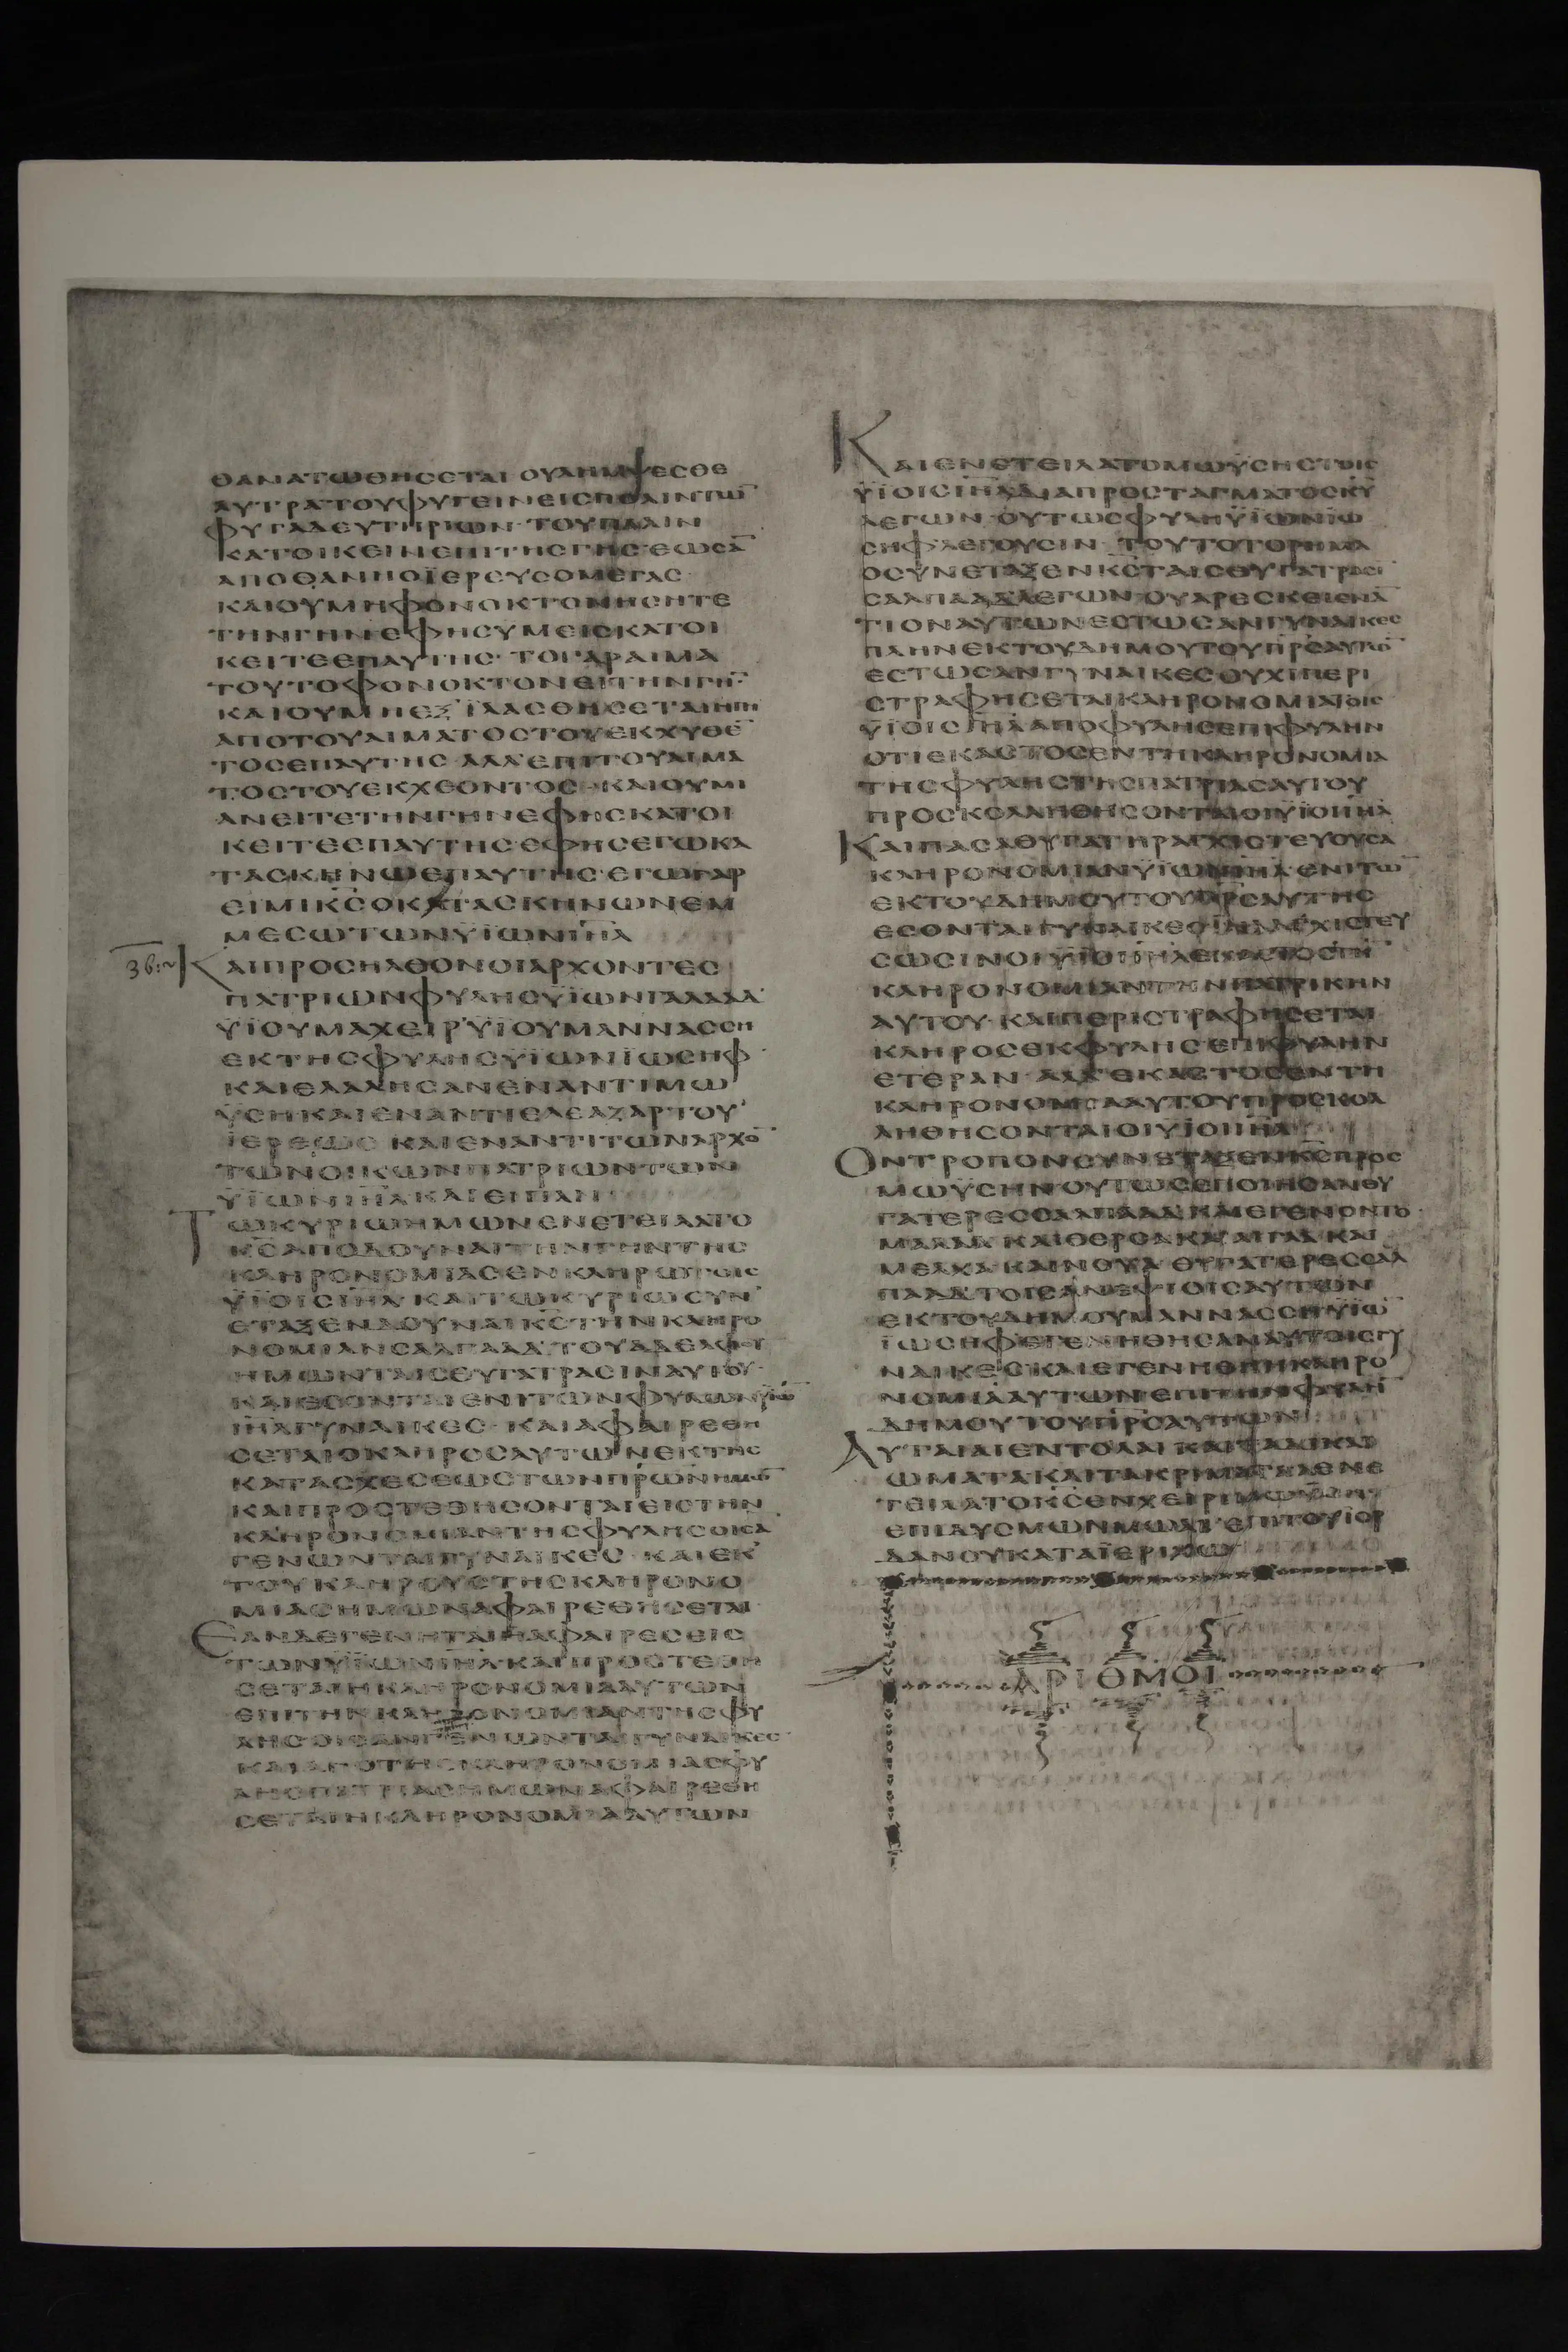 ΘΑΝΑΤΩΘΗСЄΤΑΙ ΟΥΛΗΜΨЄСΘЄ
ΛΥΤΡΑΤΟΥΦΥΓЄΙΝЄΙСΠΟΛΙΝΤΩ̅
ΦΥΓΑΔЄΥΤΗΡΙΩΝ·ΤΟΥΠΑΛΙΝ
ΚΑΤΟΙΚЄΙΝЄΠΙΤΗСΓΗС·ЄΩСΑ̅
ΑΠΟΘΑΝΗΟΪЄΡЄΥСΟΜЄΓΑС·
ΚΑΙΟΥΜΗΦΟΝΟΚΤΟΝΗСΗΤЄ
ΤΗΝΓΗΝЄΦΗСΥΜЄΙСΚΑΤΟΙ
ΚЄΙΤЄЄΠΑΥΤΗС· ΤΟΓΑΡΑΙΜΑ
ΤΟΥΤΟΦΟΝΟΚΤΟΝЄΙΤΗΝΓΗ̅·
ΚΑΙΟΥΚЄΞΪΛΑСΘΗСЄΤΑΙΗΓΗ
ΑΠΟΤΟΥΑΙΜΑΤΟСΤΟΥЄΚΧΥΘЄ̅
ΤΟСЄΠΑΥΤΗС ΑΛΛЄΠΙΤΟΥΑΙΜΑ
ΤΟСΤΟΥЄΚΧЄΟΝΤΟС· ΚΑΙΟΥΜΙ
ΑΝЄΙΤЄΤΗΝΓΗΝЄΦΗСΚΑΤΟΙ
ΚЄΙΤЄЄΠΑΥΤΗС·ЄΦΗСЄΓΩΚΑ
ΤΑСΚΗΝΩЄΠΑΥΤΗС·ЄΓΩΓΑΡ
ЄΙΜΙΚ̅С̅ΟΚΑΤΑСΚΗΝΩΝЄΜ
ΜЄСΩΤΩΝΫΪΩΝΙ̅Η̅Λ̅
ΚΑΙΠΡΟСΗΛΘΟΝΟΙΑΡΧΟΝΤЄС
ΠΑΤΡΙΩΝΦΥΛΗСΫΪΩΝΓΑΛΑΑΔ
ΫΪΟΥΜΑΧЄΙΡ'ΫΪΟΥΜΑΝΝΑССΗ
ЄΚΤΗСΦΥΛΗСΫΪΩΝΪΩСΗΦ·
ΚΑΙЄΛΑΛΗСΑΝЄΝΑΝΤΙΜΩ
ΫСΗΚΑΙЄΝΑΝΤΙЄΛЄΑΖΑΡΤΟΥ
ΪЄΡЄΩС ΚΑΙЄΝΑΝΤΙΤΩΝΑΡΧΟ̅
ΤΩΝΟΙΚΩΝΠΑΤΡΙΩΝΤΩΝ
ΫΪΩΝΙ̅Η̅Λ̅ΚΑΙЄΙΠΑΝ
ΤΩΚΥΡΙΩΗΜΩΝЄΝЄΤЄΙΛΑΤΟ
Κ̅С̅ΑΠΟΔΟΥΝΑΙΤΗΝΓΗΝΤΗС
ΚΛΗΡΟΝΟΜΙΑСЄΝΚΛΗΡΩΤΟΙС
ΫΪΟΙСΙ̅Η̅Λ̅·ΚΑΙΤΩΚΥΡΙΩСΥΝ
ЄΤΑΞЄΝΔΟΥΝΑΙΚ̅С̅ΤΗΝΚΛΗΡΟ
ΝΟΜΙΑΝСΑΛΠΑΑΔ'ΤΟΥΑΔЄΛΦΟΥ
ΗΜΩΝΤΑΙСΘΥΓΑΤΡΑСΙΝΑΥΤΟΥ·
ΚΑΙЄСΟΝΤΑΙЄΝΙΤΩΝΦΥΛΩΝΫΪΩ̅
Ι̅Η̅Λ̅ΓΥΝΑΙΚЄС· ΚΑΙΑΦΑΙΡЄΘΗ
СЄΤΑΙΟΚΛΗΡΟСΑΥΤΩΝЄΚΤΗС
ΚΑΤΑСΧЄСЄΩСΤΩΝΠ̅Ρ̅Ω̅Ν̅ΗΜΩ̅
ΚΑΙΠΡΟСΤЄΘΗСΟΝΤΑΙЄΙСΤΗΝ
ΚΛΗΡΟΝΟΜΙΑΝΤΗСΦΥΛΗСΟΙСΑ̅
ΓЄΝΩΝΤΑΙΓΥΝΑΙΚЄС· ΚΑΙЄΚ
ΤΟΥΚΛΗΡΟΥСΤΗСΚΛΗΡΟΝΟ
ΜΙΑСΗΜΩΝΑΦΑΙΡЄΘΗСЄΤΑΙ·
ЄΑΝΔЄΓЄΝΗΤΑΙΗΑΦΑΙΡЄСЄΙС
ΤΩΝΫΪΩΝΙ̅Η̅Λ̅·ΚΑΙΠΡΟСΤЄΘΗ
СЄΤΑΙΗΚΛΗΡΟΝΟΜΙΑΑΥΤΩΝ
ЄΠΙΤΗΝΚΛΗΡΟΝΟΜΙΑΝΤΗСΦΥ
ΛΗСΟΙСΑΝΓЄΝΩΝΤΑΙΓΥΝΑΙΚЄС·
ΚΑΙΑΠΟΤΗСΚΛΗΡΟΝΟΜΙΑСΦΥ
ΛΗСΠΑΤΡΙΑСΗΜΩΝΑΦΑΙΡЄΘΗ
СЄΤΑΙΗΚΛΗΡΟΝΟΜΙΑΑΥΤΩΝ
ΚΑΙЄΝЄΤЄΙΛΑΤΟΜΩΫСΗСΤΟΙС
ΫΪΟΙСΙ̅Η̅Λ̅ΔΙΑΠΡΟСΤΑΓΜΑΤΟСΚ̅Υ̅
ΛЄΓΩΝ·ΟΥΤΩСΦΥΛΗΫΪΩΝΪΩ
СΗΦΛЄΓΟΥСΙΝ· ΤΟΥΤΟΤΟΡΗΜΑ
ΟСΥΝЄΤΑΞЄΝΚ̅С̅ΤΑΙСΘΥΓΑΤΡΑСΙ
СΑΛΠΑΑΔ'ΛЄΓΩΝ·ΟΥΑΡЄСΚЄΙЄΝΑ̅
ΤΙΟΝΑΥΤΩΝЄСΤΩСΑΝΓΥΝΑΙΚЄС
ΠΛΗΝЄΚΤΟΥΔΗΜΟΥΤΟΥΠ̅Ρ̅С̅ΑΥΤΩ̅
ЄСΤΩСΑΝΓΥΝΑΙΚЄС·ΟΥΧΙΠЄΡΙ
СΤΡΑΦΗСЄΤΑΙΚΛΗΡΟΝΟΜΙΑΤΟΙС
ΫΪΟΙСΙ̅Η̅Λ̅ΑΠΟΦΥΛΗСЄΠΙΦΥΛΗΝ
ΟΤΙЄΚΑСΤΟСЄΝΤΗΚΛΗΡΟΝΟΜΙΑ
ΤΗСΦΥΛΗСΤΗСΠΑΤΡΙΑСΑΥΤΟΥ
ΠΡΟСΚΟΛΛΗΘΗСΟΝΤΑΙΟΙΫΪΟΙΙ̅Η̅Λ̅
ΚΑΙΠΑСΑΘΥΓΑΤΗΡΑΓΧΙСΤЄΥΟΥСΑ
ΚΛΗΡΟΝΟΜΙΑΝΫΪΩΝΙ̅Η̅Λ̅·ЄΝΙΤΩ̅
ЄΚΤΟΥΔΗΜΟΥΤΟΥΠ̅Ρ̅С̅ΑΥΤΗС
ЄСΟΝΤΑΙΓΥΝΑΙΚЄСΙΝΑΑΓΧΙСΤЄΥ
СΩСΙΝΟΙΫΪΟΙΙ̅Η̅Λ̅ЄΚΑСΤΟС
ΚΛΗΡΟΝΟΜΙΑΝΤΗΝΠΑΤΡΙΚΗΝ
ΑΥΤΟΥ· ΚΑΙΠЄΡΙСΤΡΑΦΗСЄΤΑΙ
ΚΛΗΡΟСЄΚΦΥΛΗСЄΠΙΦΥΛΗΝ
ЄΤЄΡΑΝ·ΑΛΛЄΚΑСΤΟСЄΝΤΗ
ΚΛΗΡΟΝΟΜΙΑΑΥΤΟΥΠΡΟСΚΟΛ
ΛΗΘΗСΟΝΤΑΙΟΙΫΪΟΙΙ̅Η̅Λ̅
ΟΝΤΡΟΠΟΝСΥΝЄΤΑΞЄΝΚ̅С̅ΠΡΟС
ΜΩΫСΗΝΟΥΤΩСЄΠΟΙΗСΑΝΘΥ
ΓΑΤЄΡЄССΑΛΠΑΑΔ'ΚΑΙЄΓЄΝΟΝΤΟ·
ΜΑΑΛΑ· ΚΑΙΘЄΡСΑ·ΚΑΙΑΙΓΛΑ·ΚΑΙ
ΜЄΛΧΑ·ΚΑΙΝΟΥΑ·ΘΥΓΑΤЄΡЄССΑΛ
ΠΑΑΔ'ΤΟΙСΑΝЄΨΙΟΙСΑΥΤΩΝ
ЄΚΤΟΥΔΗΜΟΥΜΑΝΝΑССΗΫΪΩ̅
ΪΩСΗΦЄΓЄΝΗΘΗСΑΝΑΥΤΟΙСΓΥ
ΝΑΙΚЄС·ΚΑΙЄΓЄΝΗΘΗΗΚΛΗΡΟ
ΝΟΜΙΑΑΥΤΩΝЄΠΙΤΗΝΦΥΛΗ̅
ΔΗΜΟΥΤΟΥΠ̅Ρ̅С̅ΑΥΤΩΝ
ΑΥΤΑΙΑΙЄΝΤΟΛΑΙΚΑΙΤΑΔΙΚΑΙ
ΩΜΑΤΑ·ΚΑΙΤΑΚΡΙΜΑΤΑΑЄΝЄ
ΤЄΙΛΑΤΟΚ̅С̅ЄΝΧЄΙΡΙΜΩΫСΗ
ЄΠΙΔΥСΜΩΝΜΩΑΒ'ЄΠΙΤΟΥΪΟΡ
ΔΑΝΟΥΚΑΤΑΪЄΡΙΧΩ
ΑΡΙΘΜΟΙ